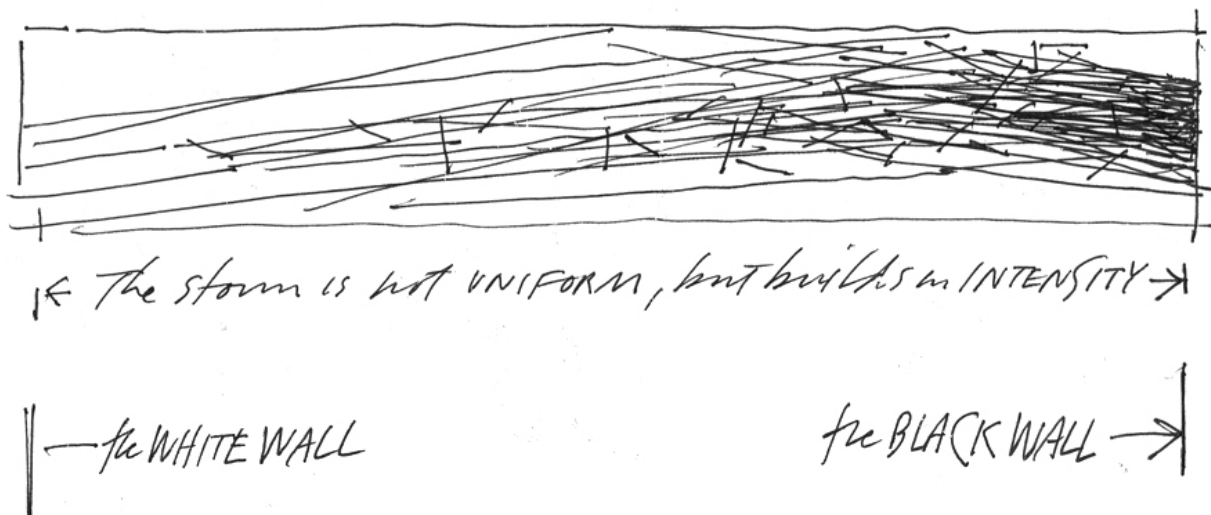 The storm is not UNIFORM, but builds in INTENSITY
the WHITE WALL
the BLACK WALL